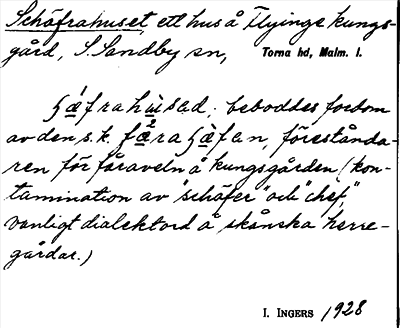 Schäfrahuset, ett hus å Flyinge kungs-
gård, S. Sandby sn, Torna hd, Malm. l.
beboddes fordom
av den s.k. förestånda-
ren för fåraveln å kungsgården (kon-
tamination av "schäfer" och "chef,"
vanligt dialektord å skånska herre-
gårdar.)
I. INGERS 1928